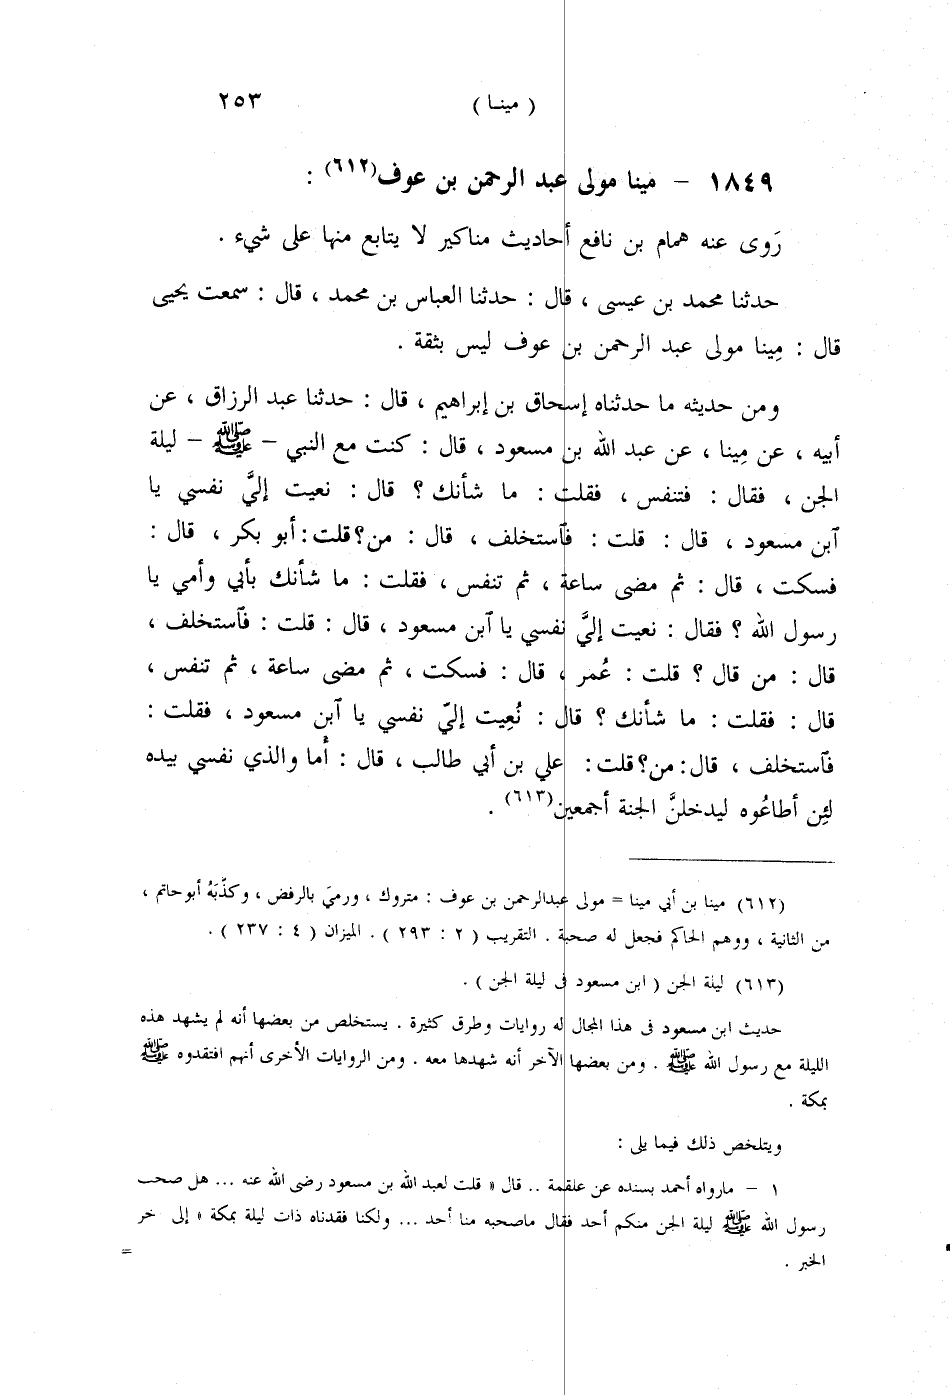 ( مينـا ) ٢٥٣
١٨٤٩ - مينا مولى عبد الرحمن بن عوف(٦١٢) :
رَوى عنه همام بن نافع أحاديث مناكير لا يتابع منها على شيء .
حدثنا محمد بن عيسى ، قال : حدثنا العباس بن محمد ، قال : سمعت يحيى
قال : مِينا مولى عبد الرحمن بن عوف ليس بثقة .
ومن حديثه ما حدثناه إسحاق بن إبراهيم ، قال : حدثنا عبد الرزاق ، عن
أبيه ، عن مِينا ، عن عبد الله بن مسعود ، قال : كنت مع النبي - ﷺ - ليلة
الجن ، فقال : فتنفس ، فقلت : ما شأنك ؟ قال : نعيت إليَّ نفسي يا
آبن مسعود ، قال : قلت : فآستخلف ، قال : من؟ قلت : أبو بكر ، قال :
فسكت ، قال : ثم مضى ساعة ، ثم تنفس ، فقلت : ما شأنك بأبي وأمي يا
رسول الله ؟ فقال : نعيت إليَّ نفسي يا آبن مسعود ، قال : قلت : فآستخلف ،
قال : من قال ؟ قلت : عُمر ، قال : فسكت ، ثم مضى ساعة ، ثم تنفس ،
قال : فقلت : ما شأنك ؟ قال : نُعِيت إليّ نفسي يا آبن مسعود ، فقلت :
فآستخلف ، قال : من؟ قلت : علي بن أبي طالب ، قال : أما والذي نفسي بيده
لئِن أطاعُوه ليدخلنَّ الجنة أجمعين(٦١٣) .
(٦١٢) مينا بن أبي مينا = مولى عبدالرحمن بن عوف : متروك ، ورميَ بالرفض ، وكذّبَهُ أبوحاتم ،
من الثانية ، ووهم الحاكم فجعل له صحبة . التقريب ( ٢ : ٢٩٣ ) . الميزان ( ٤ : ٢٣٧ ) .
(٦١٣) ليلة الجن ( ابن مسعود فى ليلة الجن ) .
حديث ابن مسعود فى هذا المجال له روايات وطرق كثيرة . يستخلص من بعضها أنه لم يشهد هذه
الليلة مع رسول الله ﷺ . ومن بعضها الآخر أنه شهدها معه . ومن الروايات الأخرى أنهم افتقدوه ﷺ
بمكة .
ويتلخص ذلك فيما يلى :
١ - مارواه أحمد بسنده عن علقمة .. قال « قلت لعبد الله بن مسعود رضى الله عنه ... هل صحب
رسول الله ﷺ ليلة الجن منكم أحد فقال ماصحبه منا أحد ... ولكنا فقدناه ذات ليلة بمكة » إلى خر
الخبر .
=